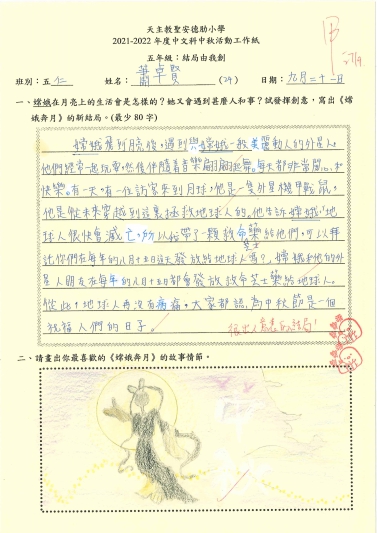 天主教聖安德助小學
2021-2022 年度中文科中秋活動工作紙
五年級：結局由我創
班別：五 仁 姓名：蕭卓賢 (24) 日期：九月二十一日
一、嫦娥在月亮上的生活會是怎樣的？她又會遇到甚麼人和事？試發揮創意，寫出《嫦
娥奔月》的新結局。(最少 80 字)
嫦娥飛到月亮後，遇到與嫦娥一般美麗動人的外星人。
他們經常一起玩耍，然後伴隨着音樂翩翩起舞，每天都非常開心和
快樂。有一天，有一位訪客來到月球，他是一隻外星機甲戰鼠，
他是從未來穿越到這裏拯救地球人的。他告訴嫦娥：「地
球人很快會滅亡，所以給帶了一顆救命藥給他們，可以拜
託你們在每年的八月十五日這天發放給地球人嗎？」嫦娥和他的外
星人朋友在每年的八月十五日都會發放救命芝士藥給地球人。
從此，地球人再沒有病痛，大家都認為中秋節是一個
祝福人們的日子。
二、請畫出你最喜歡的《嫦娥奔月》的故事情節。